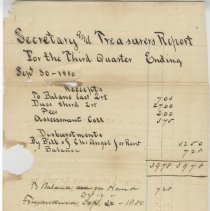 Secretary and Treasurers Report
For the Third Quarter Ending
Sept 30 - 1880
Receipts
To Balance last 2st 703
Dues third 2st 2700
Fees 200
Assessment Coll 375
Disbursments
By Bill of Chs Angel for Rent 3250
Balance 728
3978 3978
To Balance on Hand 728
Sept 30 - 1880